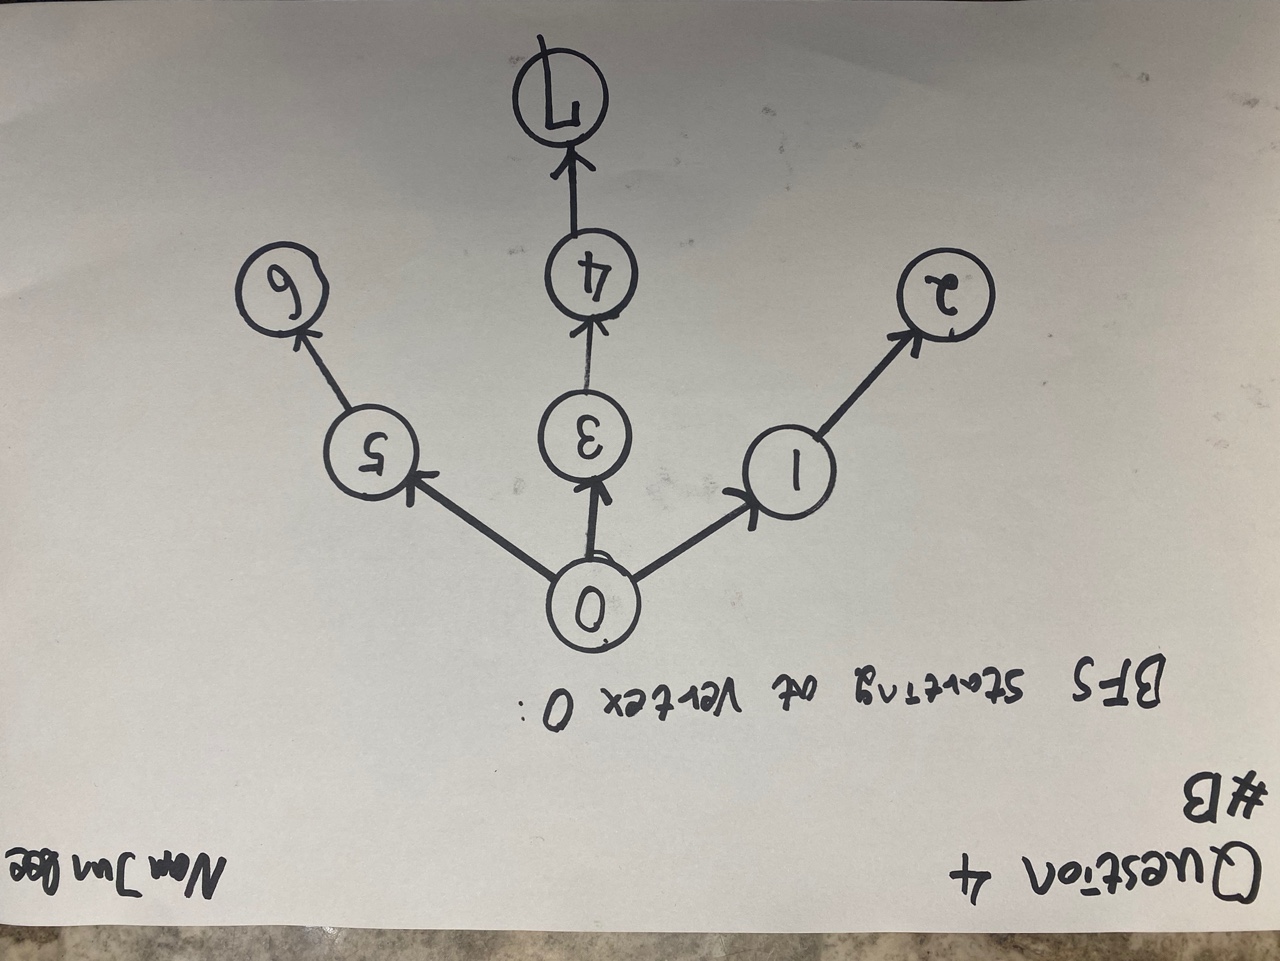 Question 4
Nam Jun Lee
#B
BFS starting at vertex 0:
0
1
3
5
2
4
6
7